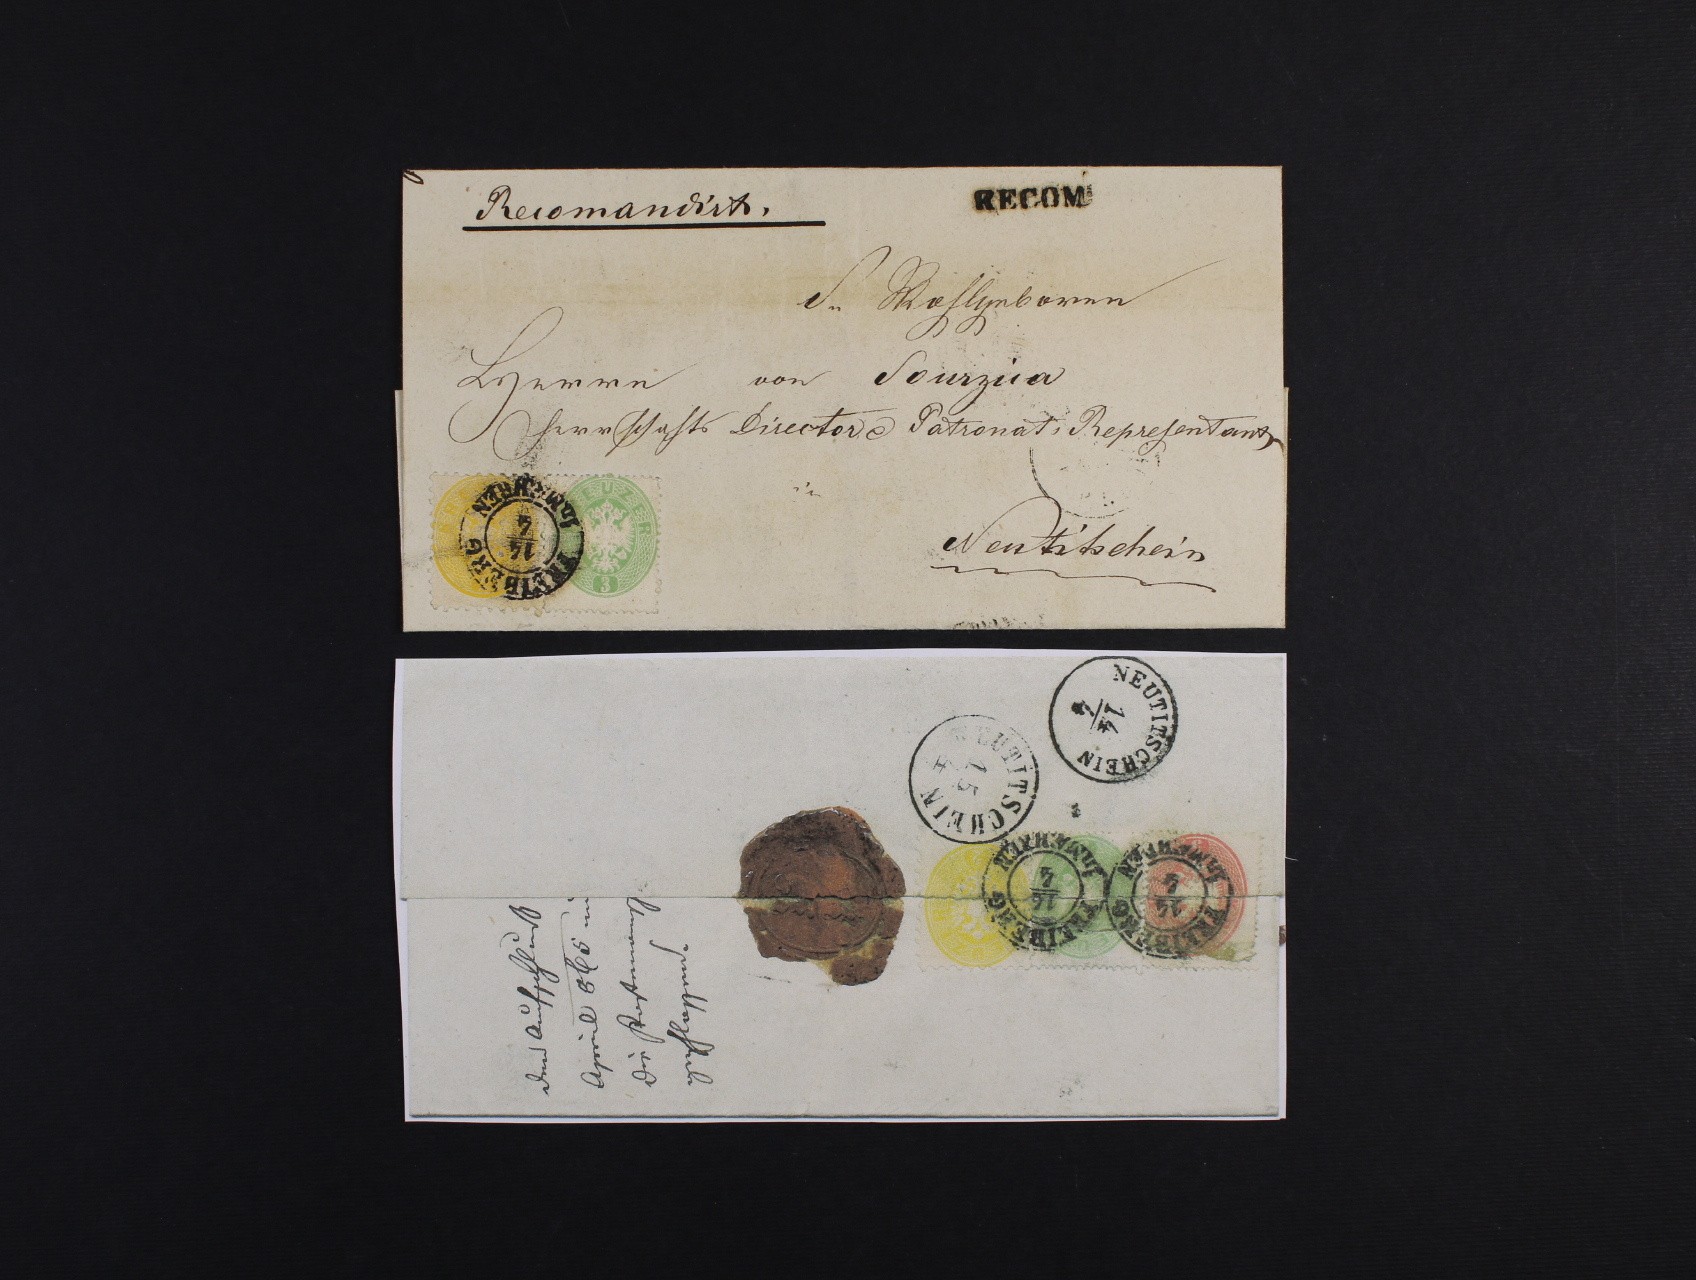 Recomandirt.
RECOM:
Sr Wohlgeboren
Herrn von Sourzüa
Herrschafts Director & Patronat. Representant
in
Neutitschein
KREUZER
3
FREIBERG
14
4
In MÆHREN
NEUTITSCHEIN
14
4
NEUTITSCHEIN
15
4
FREIBERG
14
4
In MÆHREN
FREIBERG
14
4
In MÆHREN
April
die